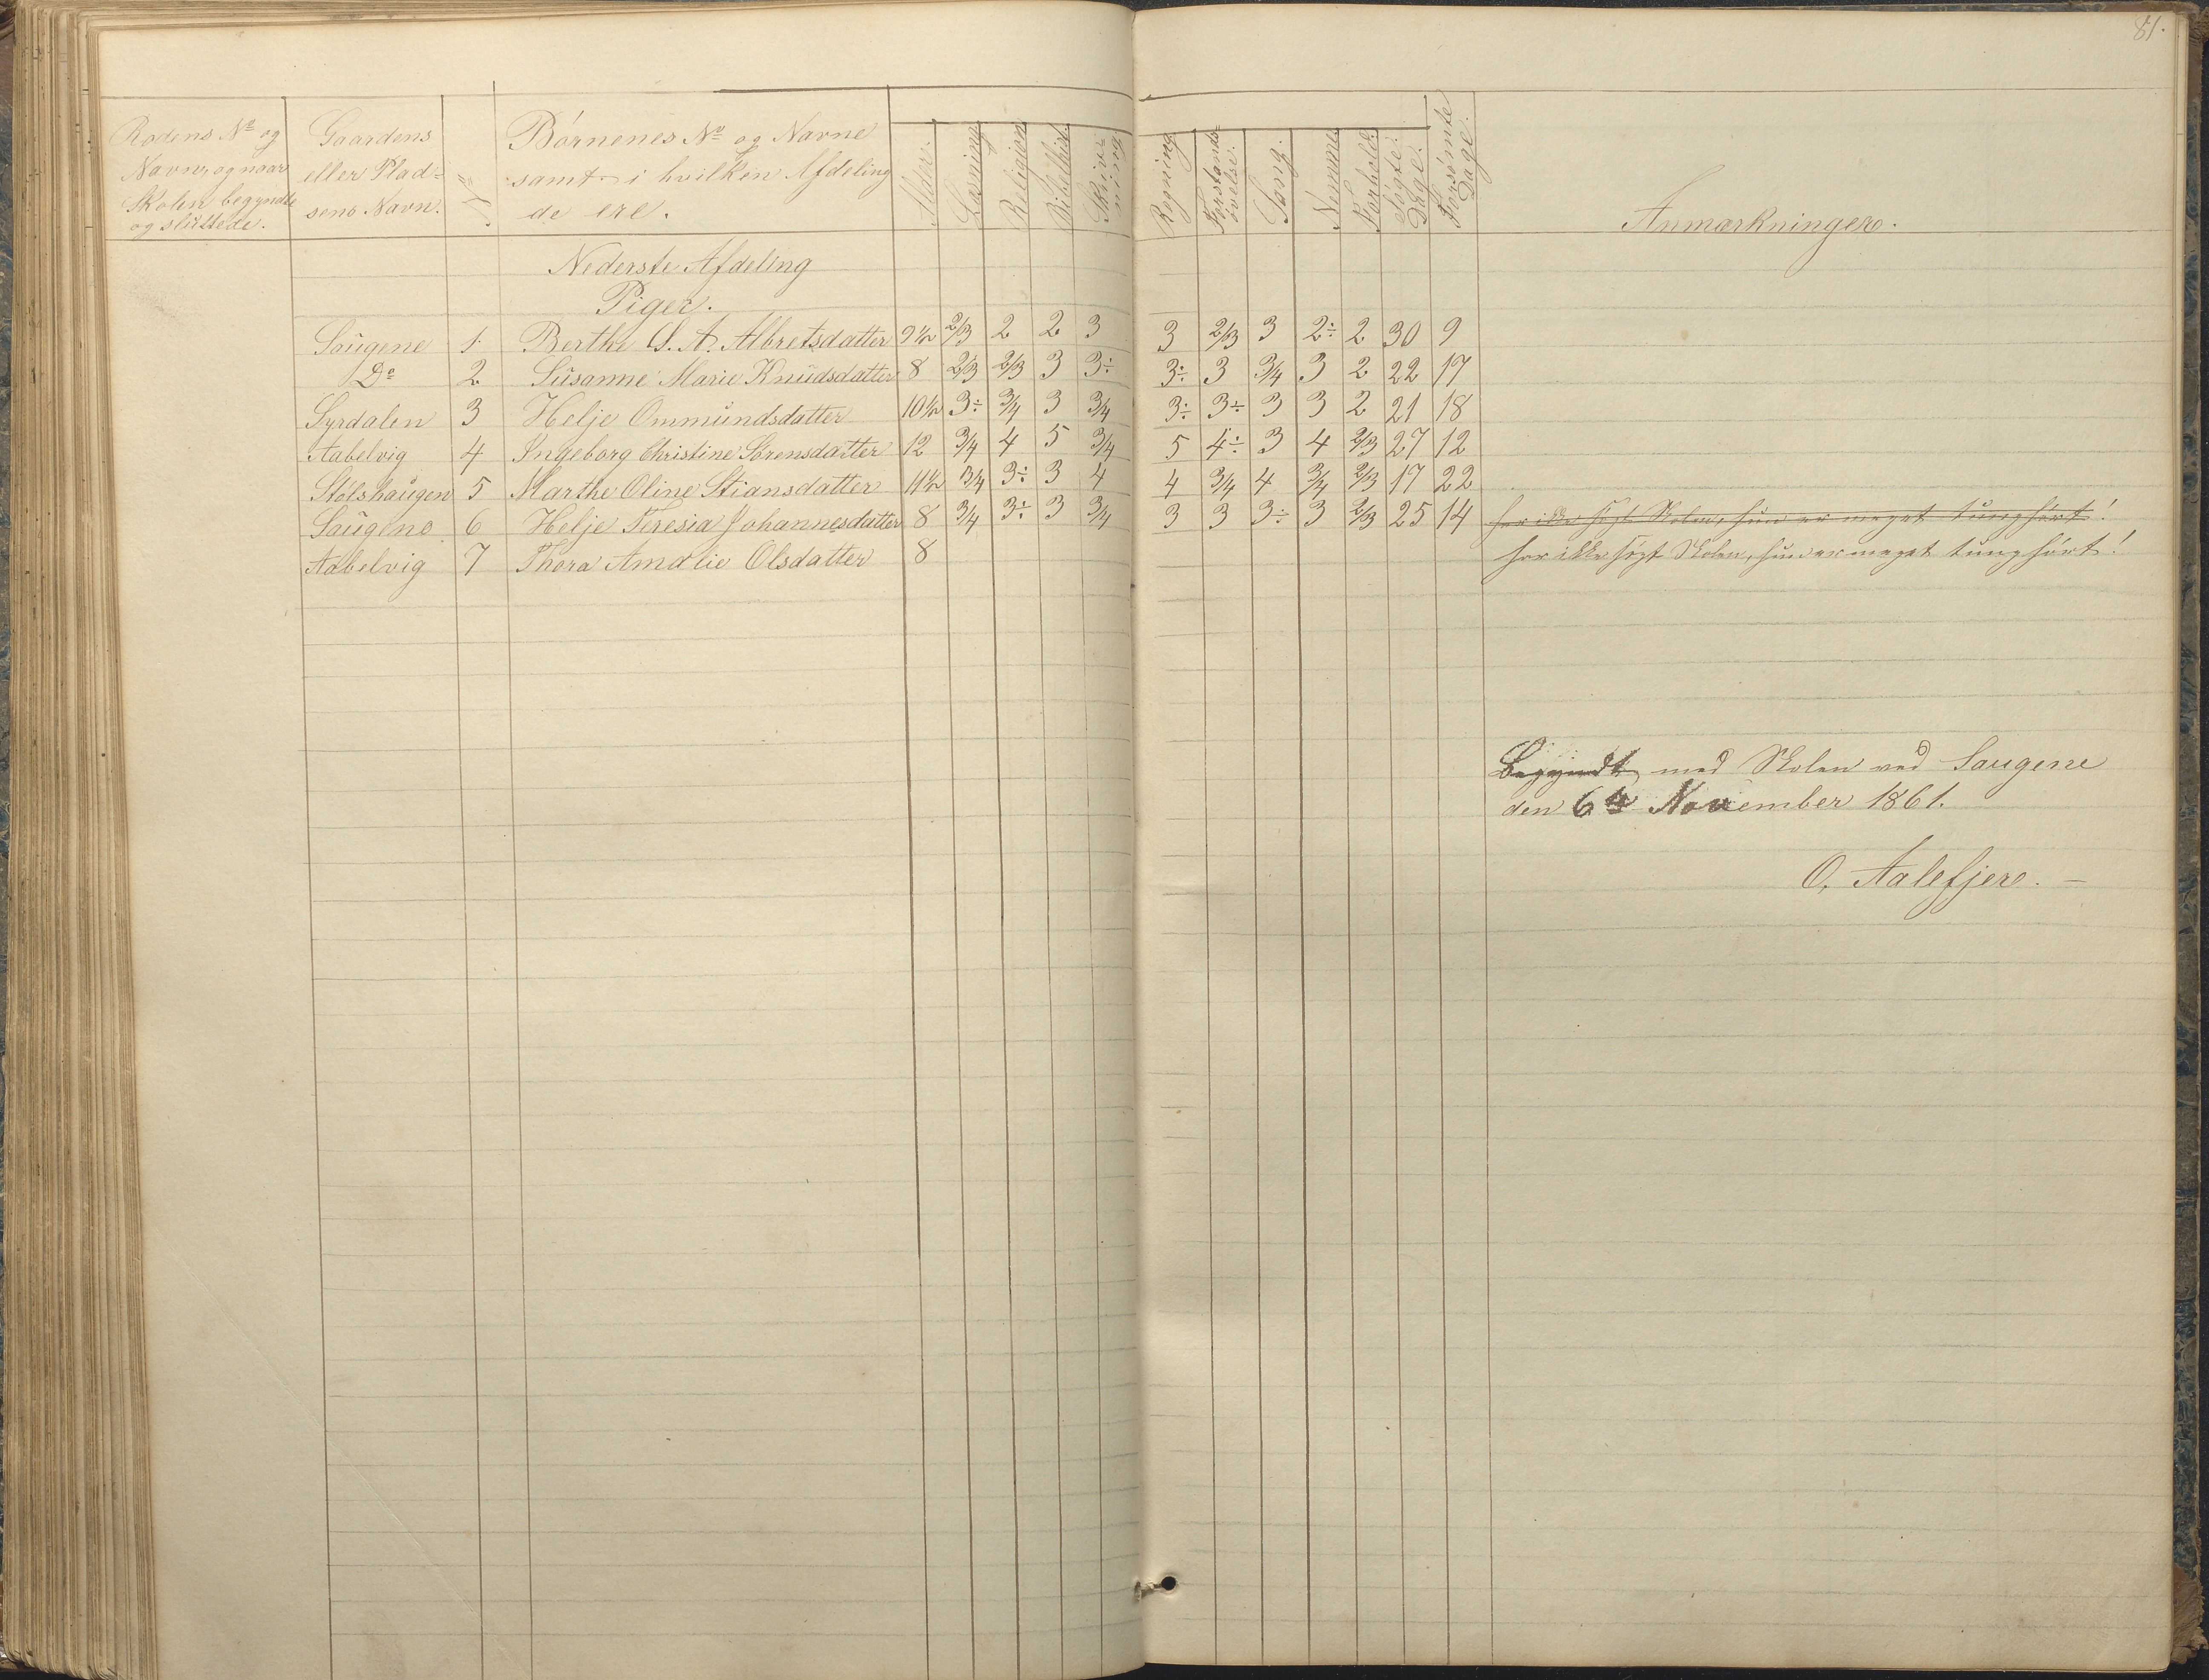 81.
Rodens No og Navn, og naar Skolen begyndte og sluttede.
Gaardens eller Pladsens Navn.
No
Börnenes No og Navne samt i hvilken Afdeling de ere.
Alder.
Læsning
Religion
Bibelhist.
Skrivning
Regning
Forstandsøvelse.
Sang.
Nemme
Forhold.
Søgte Dage.
Forsömte Dage.
Anmærkninger.
Nederste Afdeling
Piger.
Saugene 1. Berthe S. A. Albretsdatter 9½ 2/3 2 2 3 3 2/3 3 2÷ 2 30 9
Do 2 Susanne Marie Knudsdatter 8 2/3 2/3 3 3÷ 3÷ 3 3/4 3 2 22 17
Syrdalen 3 Helje Ommundsdatter 10½ 3÷ 3/4 3 3/4 3÷ 3÷ 3 3 2 21 18
Aabelvig 4 Ingeborg Christine Sørensdatter 12 3/4 4 5 3/4 5 4÷ 3 4 2/3 27 12
Stølshaugen 5 Marthe Oline Stiansdatter 11½ 3/4 3÷ 3 4 4 3/4 4 3/4 2/3 17 22
Saugene 6 Helje Teresia Johannesdatter 8 3/4 3÷ 3 3/4 3 3 3÷ 3 2/3 25 14 har ikke søgt Skolen, hun er meget tunghört!
Aabelvig 7 Thora Amalie Olsdatter 8 har ikke søgt Skolen, hun er meget tunghört!
Begyndt med Skolen ved Saugene
den 6te November 1861.
O. Aalefjer. —